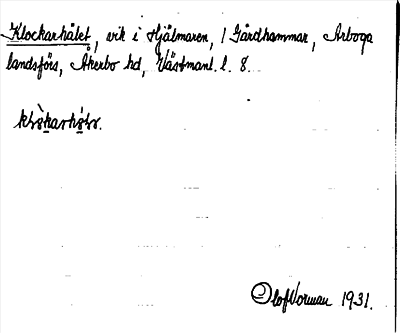 Klockarhålet, vik i Hjälmaren, / Gårdhammar, Arboga
landsförs, Åkerbo hd, Västmanl. l. 8.
Olof Norman 1931.